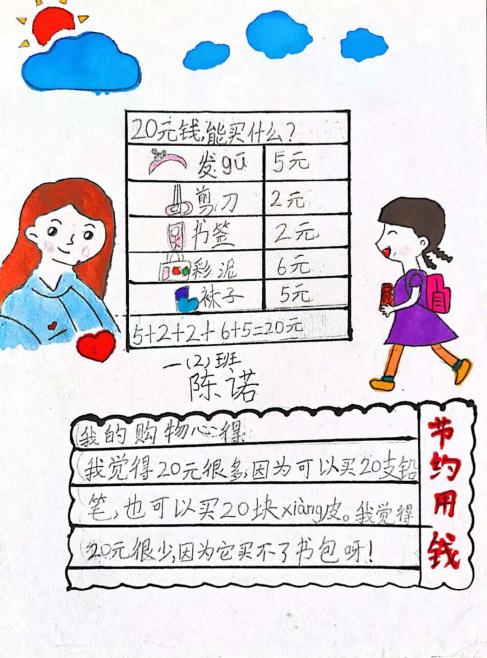 20元钱,能买什么?
发gū 5元
剪刀 2元
书签 2元
彩泥 6元
袜子 5元
5+2+2+6+5=20元
一(2)班
陈诺
我的购物心得:
我觉得20元很多,因为可以买20支铅
笔,也可以买20块xiàng皮。我觉得
20元很少,因为它买不了书包呀!
节约用钱